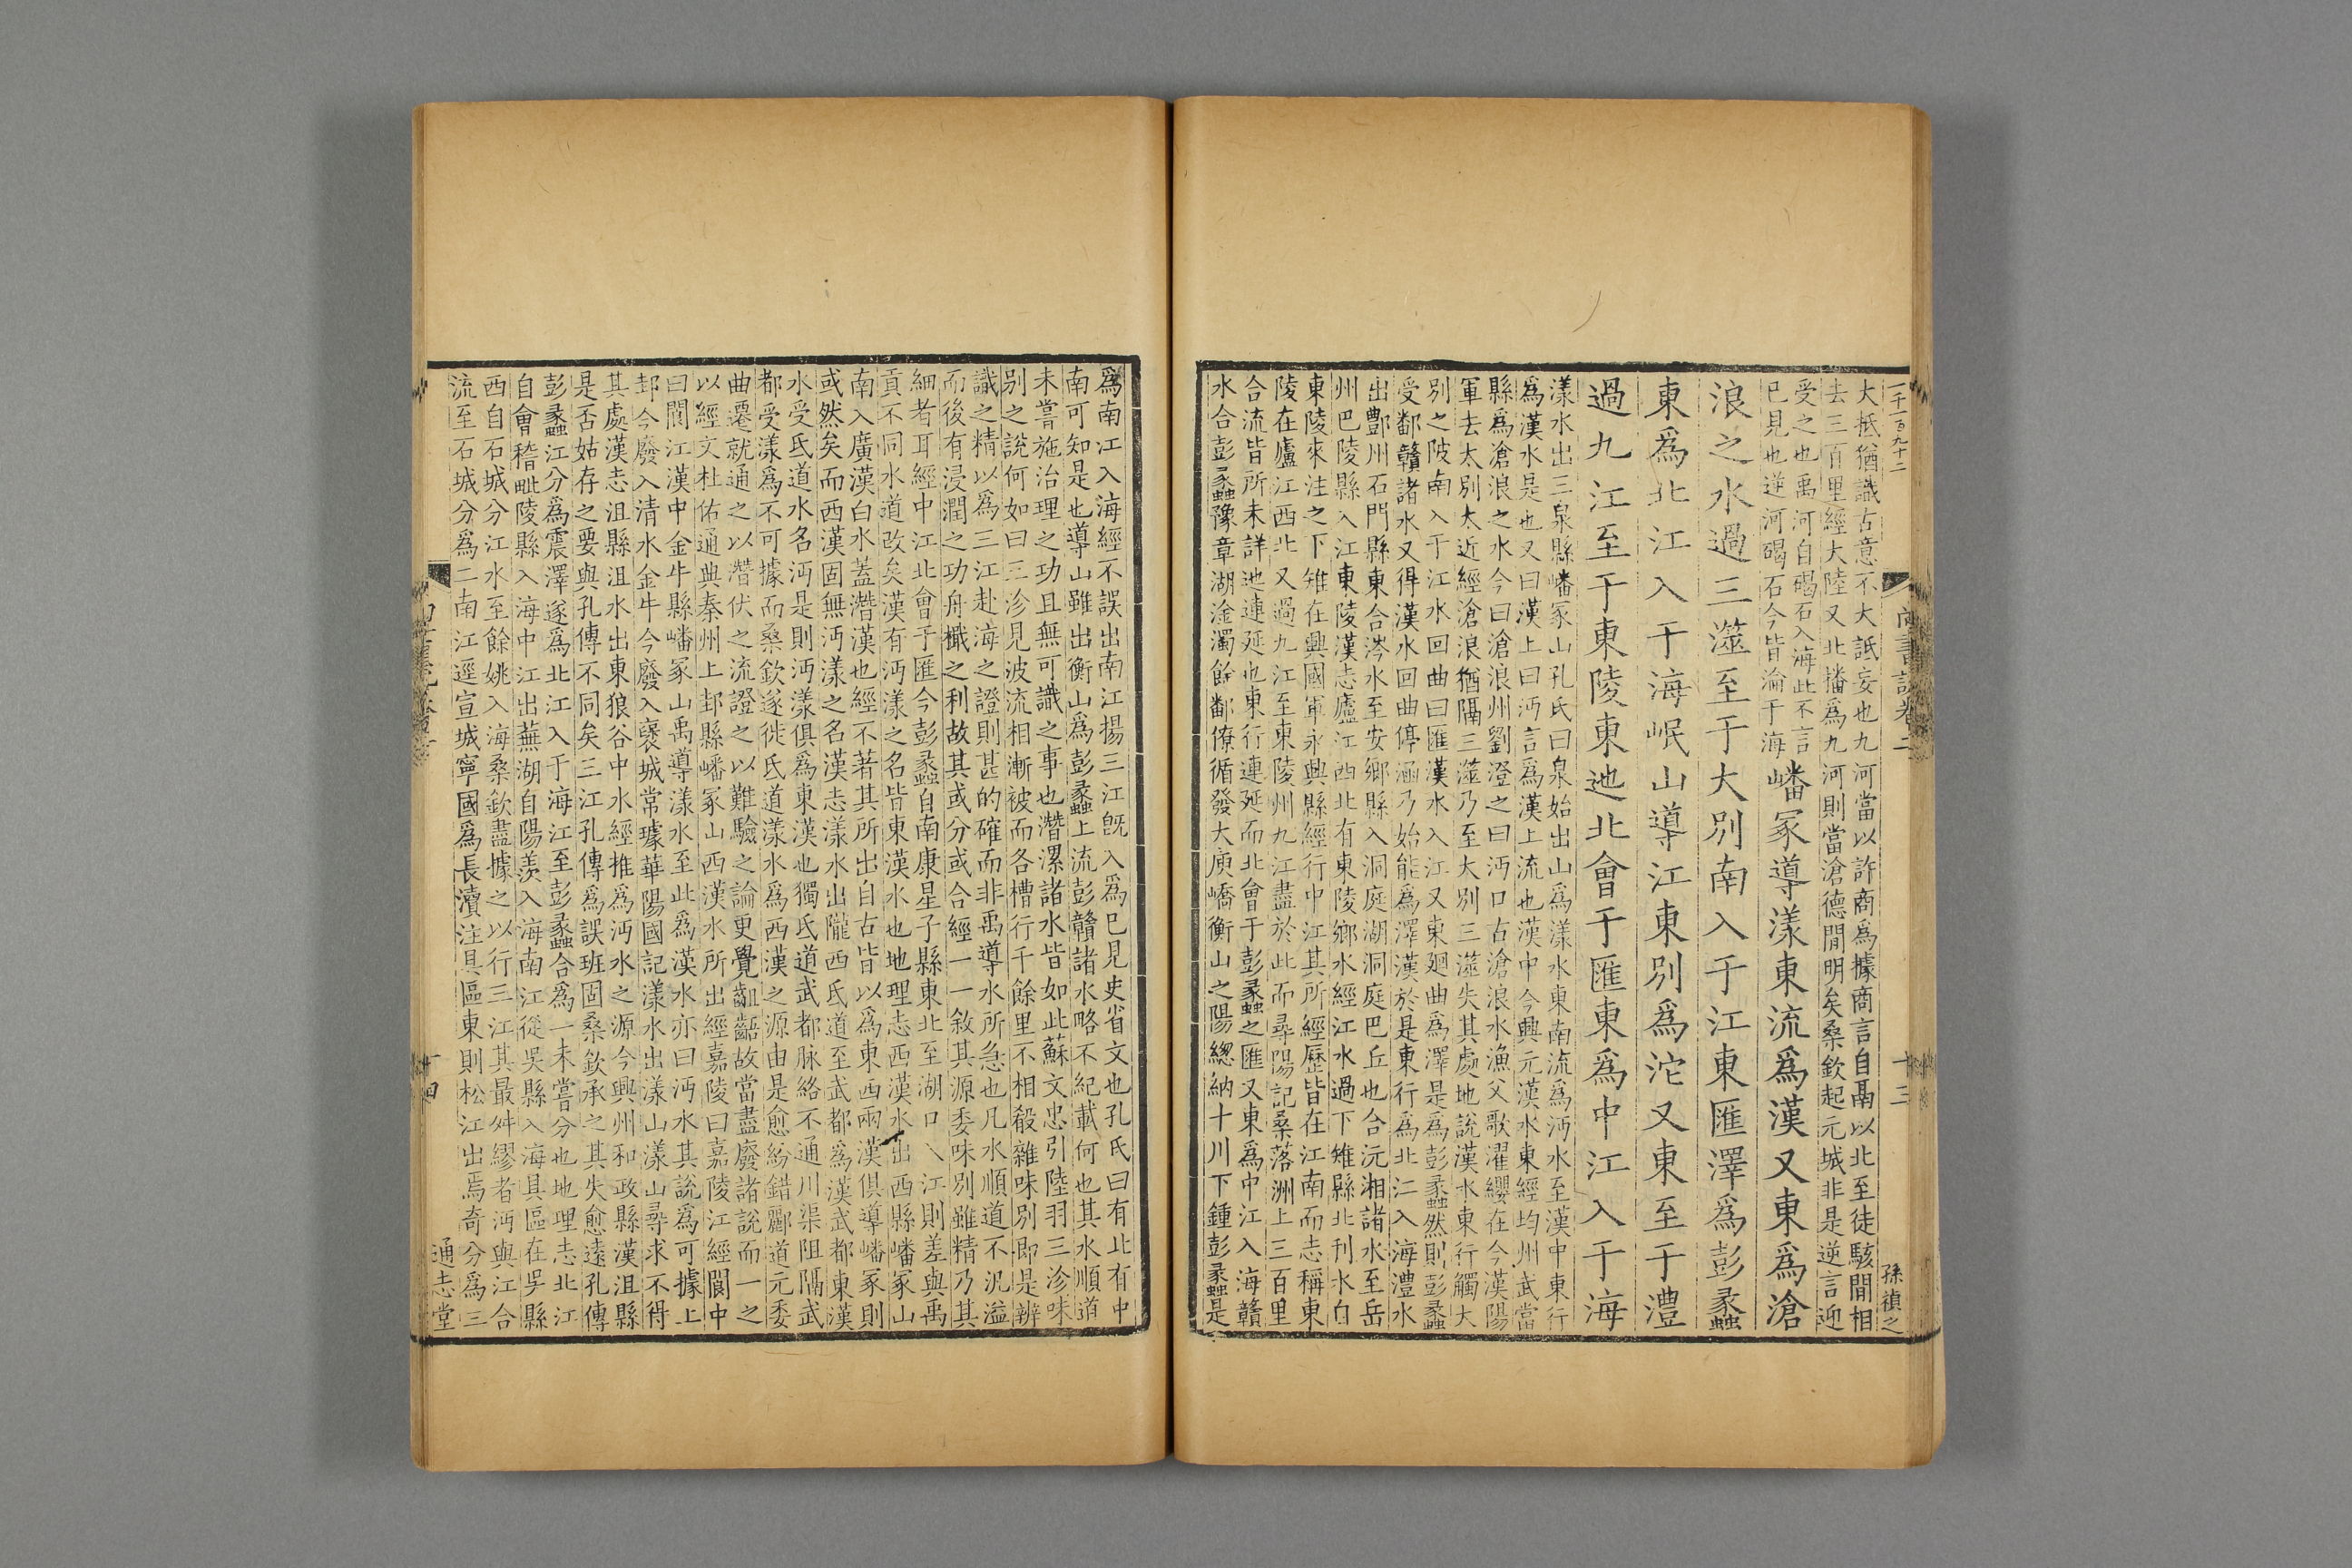 一千一百九十二
尚書詁卷二
十三
孫禎之
大抵猶識古意不大詆妄也九河當以許商爲據商言自鬲以北至徒駭間相
去三百里經大陸又北播爲九河則當滄德間明矣桑欽起元城非是逆言迎
受之也禹河自碣石入海此不言
已見也逆河碣石今皆淪于海
嶓冢導漾東流爲漢又東爲滄
浪之水過三澨至于大別南入于江東匯澤爲彭蠡
東爲北江入于海岷山導江東別爲沱又東至于澧
過九江至于東陵東迆北會于匯東爲中江入于海
漾水出三泉縣嶓冢山孔氏曰泉始出山爲漾水東南流爲沔水至漢中東行
爲漢水是也又曰漢上曰沔言爲漢上流也漢中今興元漢水東經均州武當
縣爲滄浪之水今曰滄浪州劉澄之曰沔口古滄浪水漁父歌濯纓在今漢陽
軍去太別大近經滄浪猶隔三澨乃至大別三澨失其處地說漢水東行觸大
別之陂南入于江水回曲曰匯漢水入江又東廻曲爲澤是爲彭蠡然則彭蠡
受鄱贛諸水又得漢水回曲停涵乃始能爲澤漢於是東行爲北江入海澧水
出酆州石門縣東合涔水至安鄉縣入洞庭湖洞庭巴丘也合沅湘諸水至岳
州巴陵縣入江東陵漢志廬江西北有東陵鄉水經江水過下雉縣北刊水自
東陵來注之下雉在興國軍永興縣經行中江其所經歷皆在江南而志稱東
陵在廬江西北又過九江至東陵州九江盡於此而尋陽記桑落洲上三百里
合流皆所未詳迆連延也東行連延而北會于彭蠡之匯又東爲中江入海贛
水合彭蠡豫章湖淦濁餘鄱僚循發大庾嶠衡山之陽緫納十川下鍾彭蠡是
爲南江入海經不誤出南江揚三江旣入爲已見史省文也孔氏曰有北有中
南可知是也導山雖出衡山爲彭蠡上流彭贛諸水略不紀載何也其水順道
未嘗施治理之功且無可識之事也潛漯諸水皆如此蘇文忠引陸羽三泠味
别之說何如曰三泠見波流相漸被而各槽行千餘里不相殽雜味別即是辨
識之精以爲三江赴海之證則甚的確而非禹導水所急也凡水順道不汎溢
而後有浸潤之功舟檝之利故其或分或合經一一敘其源委味別雖精乃其
細者耳經中江北會于匯今彭蠡自南康星子縣東北至湖口入江則差與禹
貢不同水道改矣漢有沔漾之名皆東漢水也地理志西漢水出西縣嶓冢山
南入廣漢白水蓋潛漢也經不著其所出自古皆以爲東西兩漢俱導嶓冢則
或然矣而西漢固無沔漾之名漢志漾水出隴西氐道至武都爲漢武都東漢
水受氐道水名沔是則沔漾俱爲東漢也獨氐道武都脉絡不通川渠阻隔武
都受漾爲不可據而桑欽遂徙氐道漾水爲西漢之源由是愈紛錯酈道元委
曲遷就通之以潛伏之流證之以難驗之論更覺齟齬故當盡廢諸說而一之
以經文杜佑通典秦州上邽縣嶓冢山西漢水所出經嘉陵曰嘉陵江經閬中
曰閬江漢中金牛縣嶓冢山禹導漾水至此爲漢水亦曰沔水其說爲可據上
邽今廢入清水金牛今廢入襃城常璩華陽國記漾水出漾山漾山尋求不得
其處漢志沮縣沮水出東狼谷中水經推爲沔水之源今興州和政縣漢沮縣
是否姑存之要與孔傳不同矣三江孔傳爲誤班固桑欽承之其失愈遠孔傳
彭蠡江分爲震澤遂爲北江入于海江至彭蠡合爲一未嘗分也地理志北江
自會稽毗陵縣入海中江出蕪湖自陽羨入海南江從吳縣入海具區在吳縣
西自石城分江水至餘姚入海桑欽盡據之以行三江其最舛繆者沔與江合
流至石城分爲二南江逕宣城寧國爲長瀆注具區東則松江出焉奇分爲三
通志堂
十四